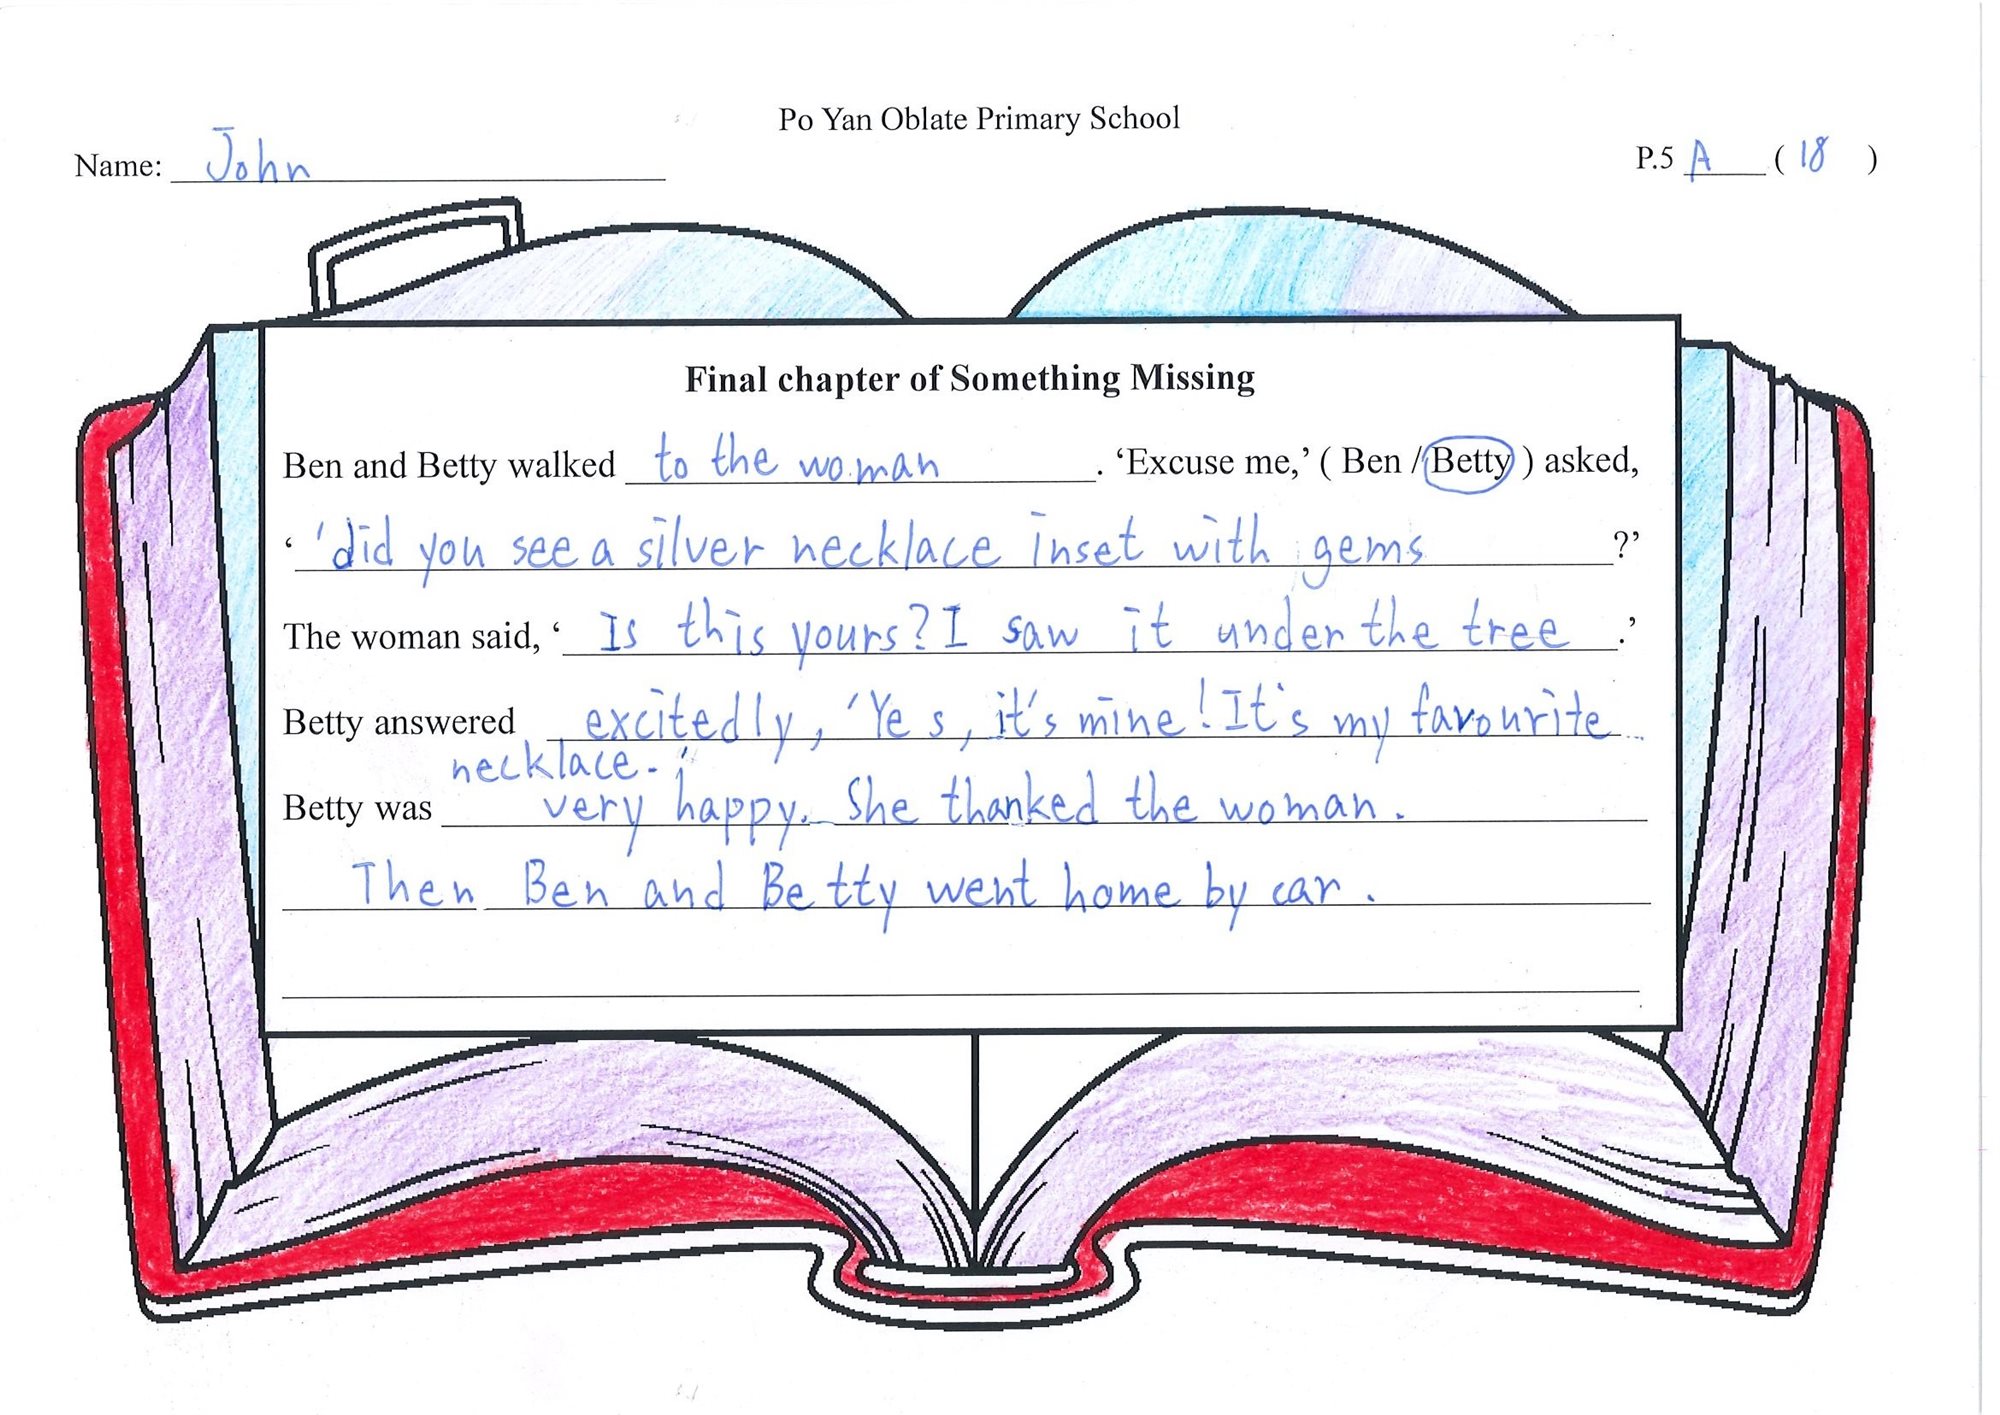 Po Yan Oblate Primary School
Name: John P.5 A ( 18 )
Final chapter of Something Missing
Ben and Betty walked to the woman. ‘Excuse me,’ ( Ben / Betty ) asked,
‘ 'did you see a silver necklace inset with gems ?’
The woman said, ‘ Is this yours? I saw it under the tree .’
Betty answered excitedly, 'Yes, it's mine! It's my favourite
necklace.'
Betty was very happy. She thanked the woman.
Then Ben and Betty went home by car.